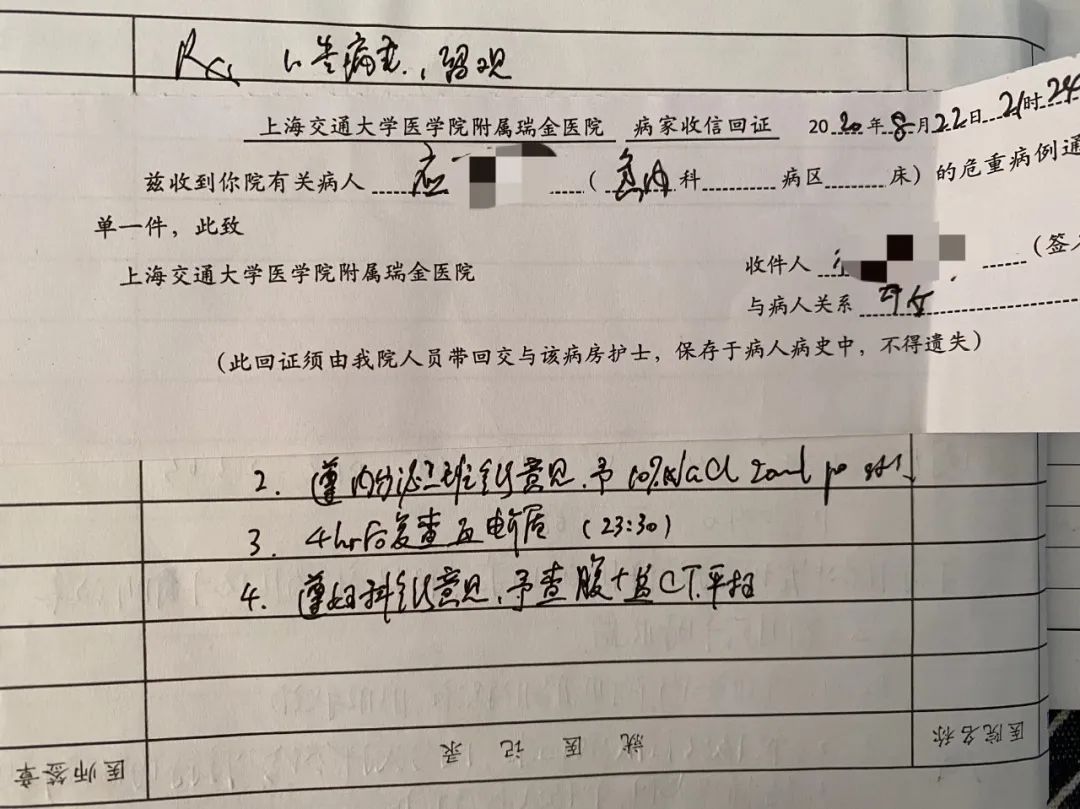 Rx 1. 告病重, 留观
上海交通大学医学院附属瑞金医院 病家收信回证 2020年8月22日21时24
兹收到你院有关病人 应 (急内科 病区 床) 的危重病例通
单一件, 此致
上海交通大学医学院附属瑞金医院 收件人 (签
与病人关系 母女
(此回证须由我院人员带回交与该病房护士, 保存于病人病史中, 不得遗失)
2. 遵内分泌二班会诊意见, 予 10%NaCl 20ml po st!
3. 4hr后复查血电解质 (23:30)
4. 遵妇科会诊意见, 予查腹+盆CT平扫
医师签章 就医记录 医院名称